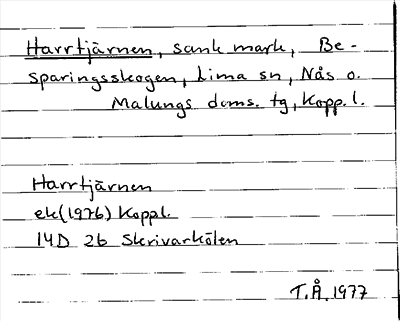 Harrtjärnen, sank mark, Be-
sparingsskogen, Lima sn, Nås o.
Malungs doms. tg, Kopp. l.
Harrtjärnen
ek(1976) Koppl.
14D 2b Skrivarkölen
T.Å. 1977